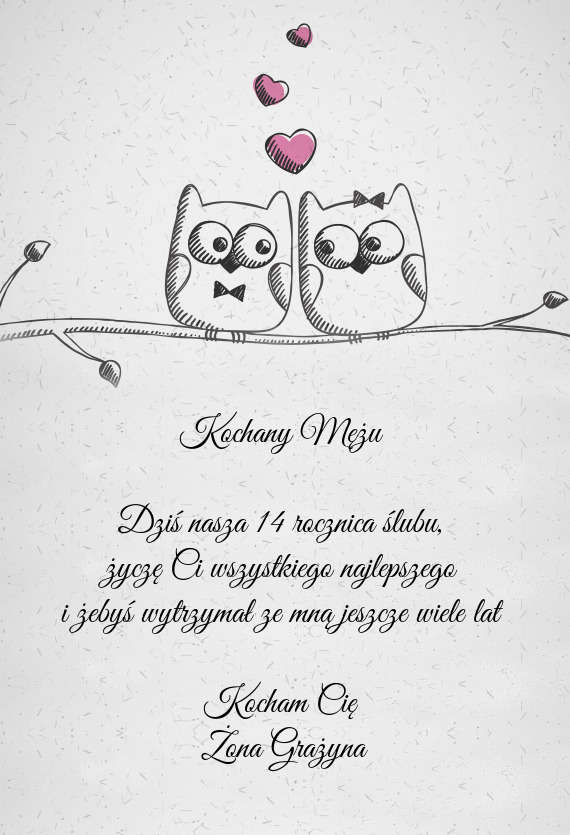 Kochany Mężu
Dziś nasza 14 rocznica ślubu,
życzę Ci wszystkiego najlepszego
i żebyś wytrzymał ze mną jeszcze wiele lat
Kocham Cię
Żona Grażyna